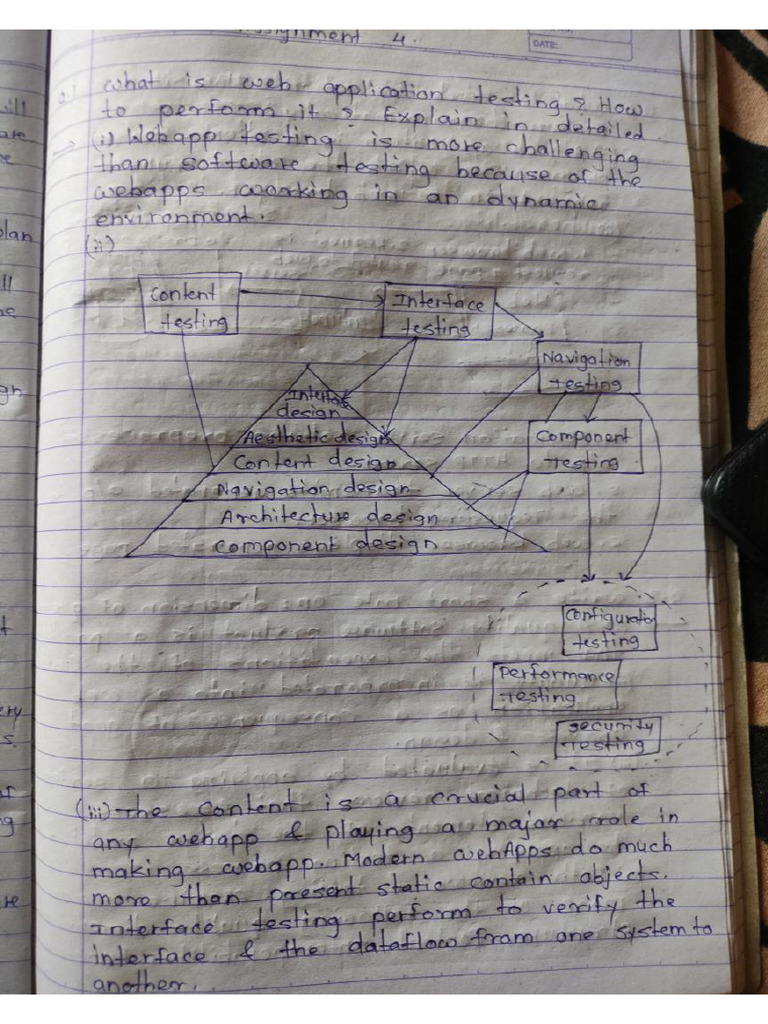 Assignment 4.
DATE:
Q.1 What is web application testing? How
to perform it? Explain in detailed.
→ (i) Webapp testing is more challenging
than software testing because of the
webapps working in an dynamic
environment.
(ii)
Content
testing
Interface
testing
Navigation
testing
Component
testing
Interface
design
Aesthetic design
Content design
Navigation design
Architecture design
Component design
Configuration
testing
Performance
testing
Security
testing
(iii) The content is a crucial part of
any webapp & playing a major role in
making webapp. Modern webApps do much
more than present static contain objects.
Interface testing perform to verify the
interface & the dataflow from one system to
another.